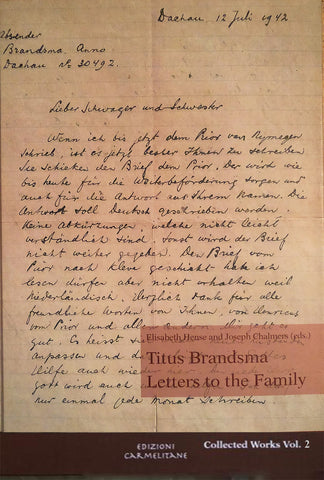 Dachau, 12 Juli 1942
Absender
Brandsma Anno
Dachau No 30492.
Lieber Schwager und Schwester
Wenn ich bis jetzt dem Prior von Nymegen
schrieb, ist es jetzt besser Ihnen zu schreiben
Sie schicken den Brief dem Prior. Der wird wie
bis heute für die Weiterbeförderung sorgen und
auch für die Antwort aus Ihrem Namen. Die
Antwort soll Deutsch geschrieben werden.
Keine Abkürzungen, welche nicht leicht
verständlich sind, sonst wird der Brief
nicht weiter gegeben. Den Brief vom
Prior nach Kleve geschickt habe ich
lesen dürfen aber nicht erhalten weil
Niederländisch. Herzlich Dank für alle
freundliche Worten von Ihnen, von
vom Prior und geht es
gut. Es heisst
Elisabeth Hense and Joseph Chalmers (eds.)
anpassen und
Titus Brandsma
Hilfe auch
Letters to the Family
Gott wird auch
nur einmal jede Monat Schreiben.
EDIZIONI
CARMELITANE
Collected Works Vol. 2